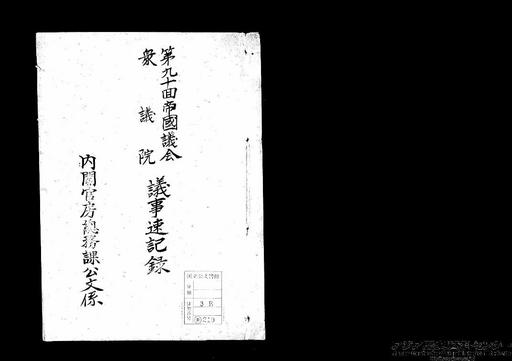 第九十回帝國議会
衆議院
議事速記録
内閣官房総務課公文係
国立公文書館
分類
3B
219